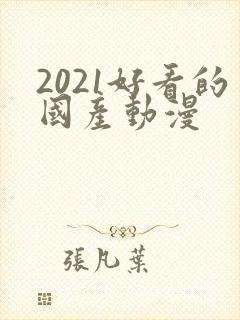 2021好看的
國產動漫
張凡葉